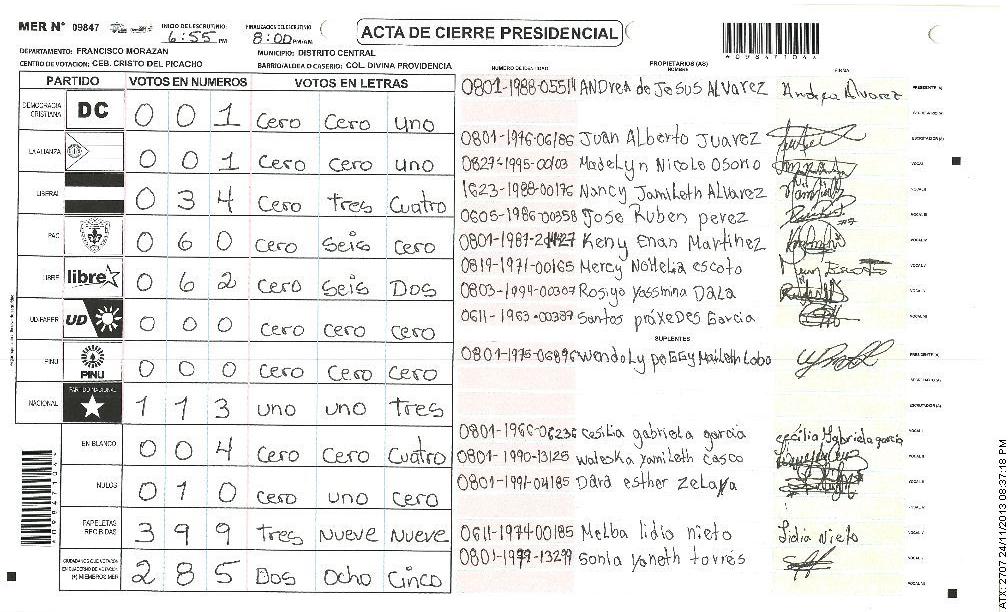 MER N° 09847
INICIO DEL ESCRUTINIO 6:55 PM
FINALIZACION DEL ESCRUTINIO 8:00 PM/AM
ACTA DE CIERRE PRESIDENCIAL
DEPARTAMENTO: FRANCISCO MORAZAN MUNICIPIO: DISTRITO CENTRAL
CENTRO DE VOTACION: CEB. CRISTO DEL PICACHO BARRIO/ALDEA O CASERIO: COL. DIVINA PROVIDENCIA
PARTIDO VOTOS EN NUMEROS VOTOS EN LETRAS
DEMOCRACIA CRISTIANA DC 0 0 1 Cero Cero uno
LA ALIANZA 0 0 1 Cero Cero uno
LIBERAL 0 3 4 Cero Tres Cuatro
PAC 0 6 0 Cero Seis Cero
LIBRE libre 0 6 2 Cero Seis Dos
UD-FAPER UD 0 0 0 Cero Cero Cero
PINU PINU 0 0 0 Cero Cero Cero
NACIONAL PARTIDO NACIONAL 1 1 3 uno uno Tres
EN BLANCO 0 0 4 Cero Cero Cuatro
NULOS 0 1 0 Cero uno Cero
PAPELETAS RECIBIDAS 3 9 9 Tres Nueve Nueve
CIUDADANOS QUE VOTARON (+) MIEMBROS MER 2 8 5 Dos Ocho Cinco
NUMERO DE IDENTIDAD PROPIETARIOS (AS) NOMBRE FIRMA
0801-1988-05514 ANDrea de Jesus Alvarez Andrea Alvarez PRESIDENTE (A)
SECRETARIO (A)
Juan Alberto Juarez ESCRUTADOR (A)
0827-1995-00103 Madelyn Nicole Osorio VOCAL I
1623-1988-00176 Nancy Jamileth Alvarez VOCAL II
0605-1986-00358 Jose Ruben perez VOCAL III
Keny Enan Martinez VOCAL IV
0819-1971-00165 Mercy Nohelia escoto VOCAL V
0803-1994-00307 Yassmina VOCAL VI
0611-1963-00387 Santos práxeDes Garcia VOCAL VII
SUPLENTES
0801-1975-06896 Wendoly peGGy Maileth Lobo PRESIDENTE (A)
SECRETARIO (A)
ESCRUTADOR (A)
Cesilia gabriela garcia Cecilia Gabriela garcia VOCAL I
0801-1990-13125 Waleska Yamileth Casco VOCAL II
0801-1991-04185 Dara esther Zelaya VOCAL III
VOCAL IV
0611-1974-00185 Melba lidia nieto Lidia Nieto VOCAL V
Sonia Yaneth torres VOCAL VI
VOCAL VII
ATX: 2707 24/11/2013 08:37:18 PM